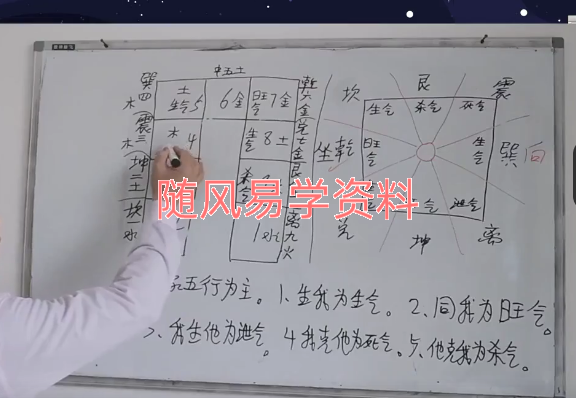 中五土
巽四木
土生气5
6金
旺气7金
乾六金
震三木
木4
生气8土
兑七金
坤二土
艮
坎一水
1水
离九火
坎
艮
震
生气
杀气
死气
坐乾
旺气
生气
巽向
气
泄气
兑
坤
离
随风易学资料
五行为主。1、生我为生气。2、同我为旺气。
3、我生他为泄气。4我克他为死气。5、他克我为杀气